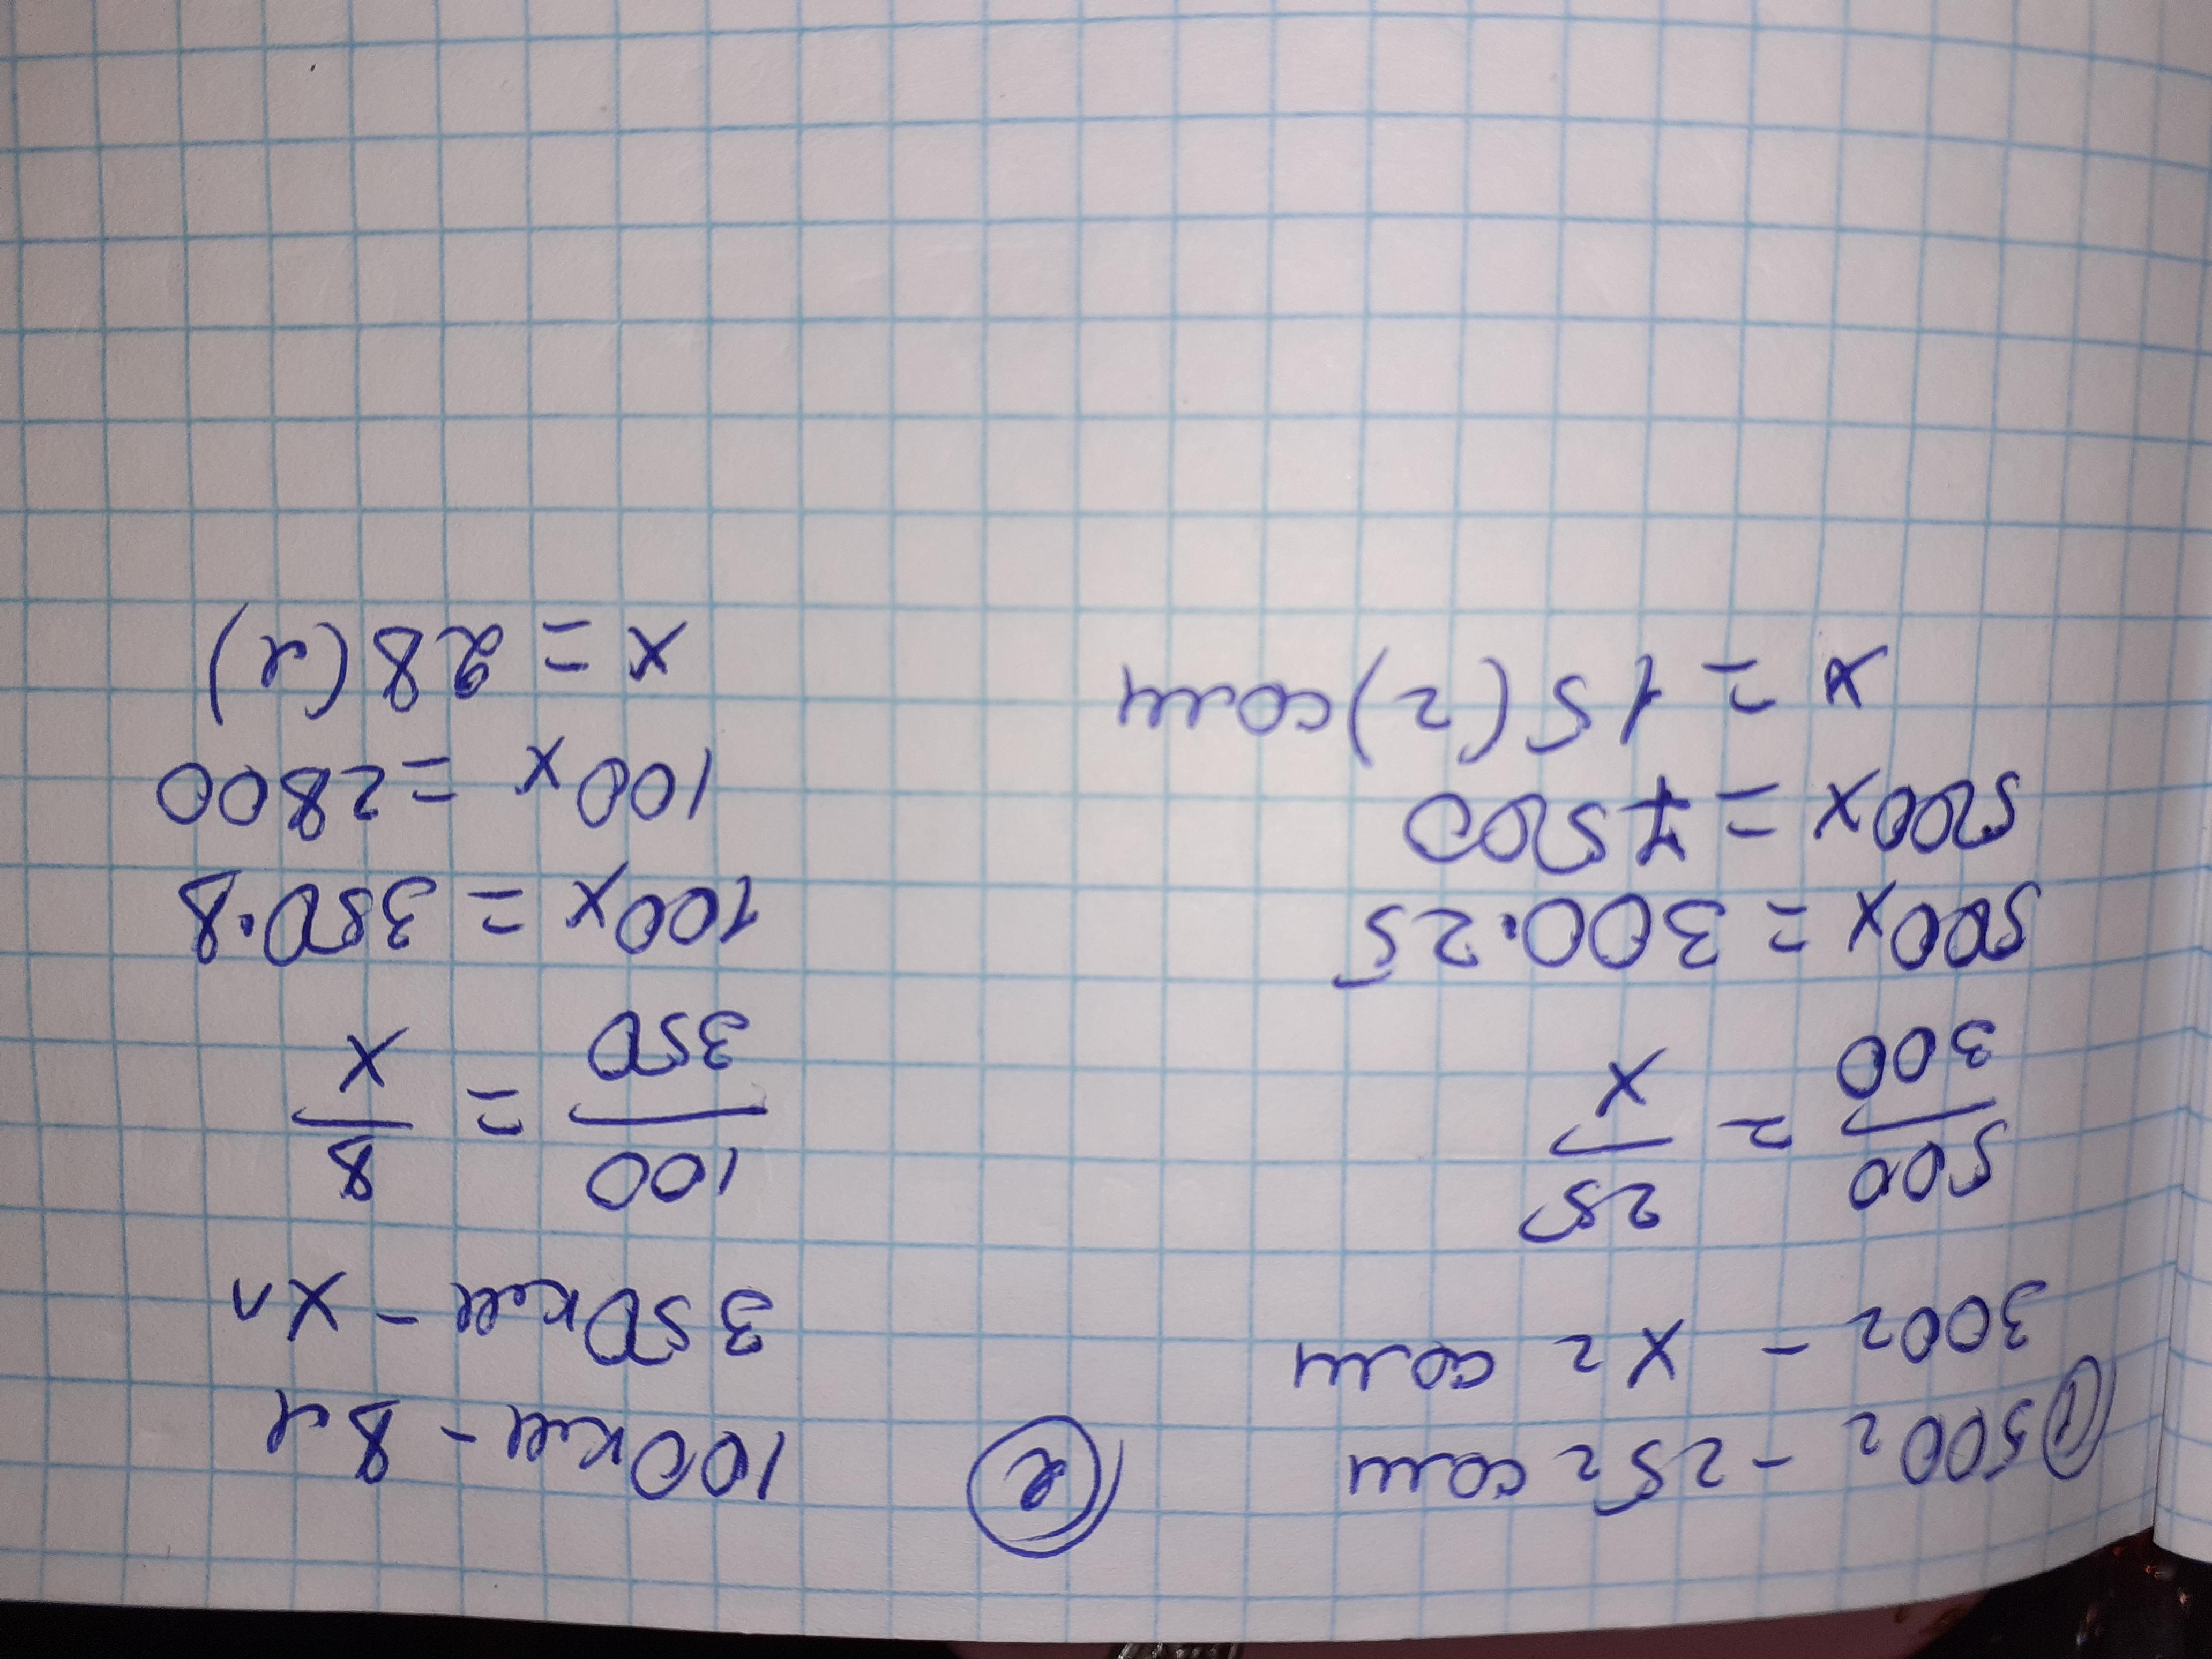 ① 500г – 25г соли
300г – x г соли
500/300 = 25/x
500x = 300·25
500x = 7500
x = 15 (г) соли
② 100км – 8л
350км – x л
100/350 = 8/x
100x = 350·8
100x = 2800
x = 28 (л)